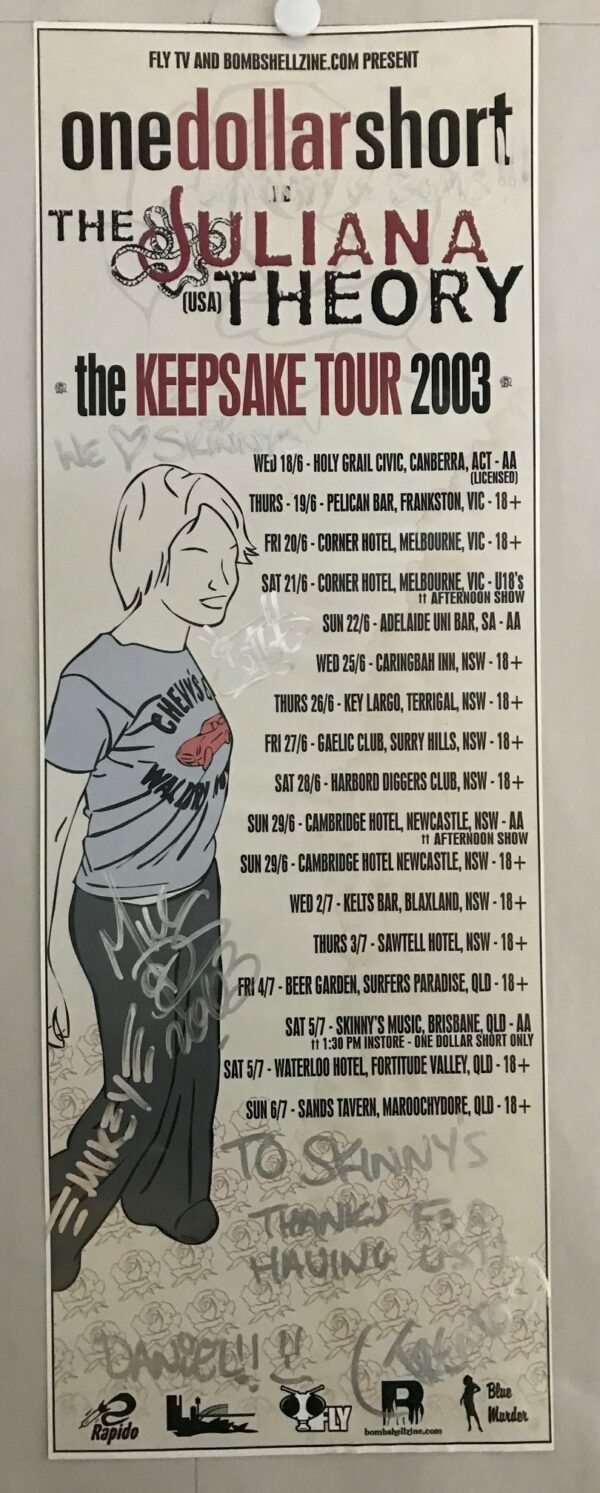 FLY TV AND BOMBSHELLZINE.COM PRESENT
onedollarshort
THE JULIANA
(USA) THEORY
the KEEPSAKE TOUR 2003
WE ♡ SKINNYS
WED 18/6 - HOLY GRAIL CIVIC, CANBERRA, ACT - AA
(LICENSED)
THURS - 19/6 - PELICAN BAR, FRANKSTON, VIC - 18+
FRI 20/6 - CORNER HOTEL, MELBOURNE, VIC - 18+
SAT 21/6 - CORNER HOTEL, MELBOURNE, VIC - U18's
†† AFTERNOON SHOW
SUN 22/6 - ADELAIDE UNI BAR, SA - AA
WED 25/6 - CARINGBAH INN, NSW - 18+
THURS 26/6 - KEY LARGO, TERRIGAL, NSW - 18+
FRI 27/6 - GAELIC CLUB, SURRY HILLS, NSW - 18+
SAT 28/6 - HARBORD DIGGERS CLUB, NSW - 18+
SUN 29/6 - CAMBRIDGE HOTEL, NEWCASTLE, NSW - AA
†† AFTERNOON SHOW
SUN 29/6 - CAMBRIDGE HOTEL NEWCASTLE, NSW - 18+
WED 2/7 - KELTS BAR, BLAXLAND, NSW - 18+
THURS 3/7 - SAWTELL HOTEL, NSW - 18+
FRI 4/7 - BEER GARDEN, SURFERS PARADISE, QLD - 18+
SAT 5/7 - SKINNY'S MUSIC, BRISBANE, QLD - AA
†† 1:30 PM INSTORE - ONE DOLLAR SHORT ONLY
SAT 5/7 - WATERLOO HOTEL, FORTITUDE VALLEY, QLD - 18+
SUN 6/7 - SANDS TAVERN, MAROOCHYDORE, QLD - 18+
CHEVY'S
2003
=MIKEY=
TO SKINNY'S
THANKS FOR
HAVING US!!
DANIEL!!
Rapido
FLY
bombshellzine.com
Blue
Murder